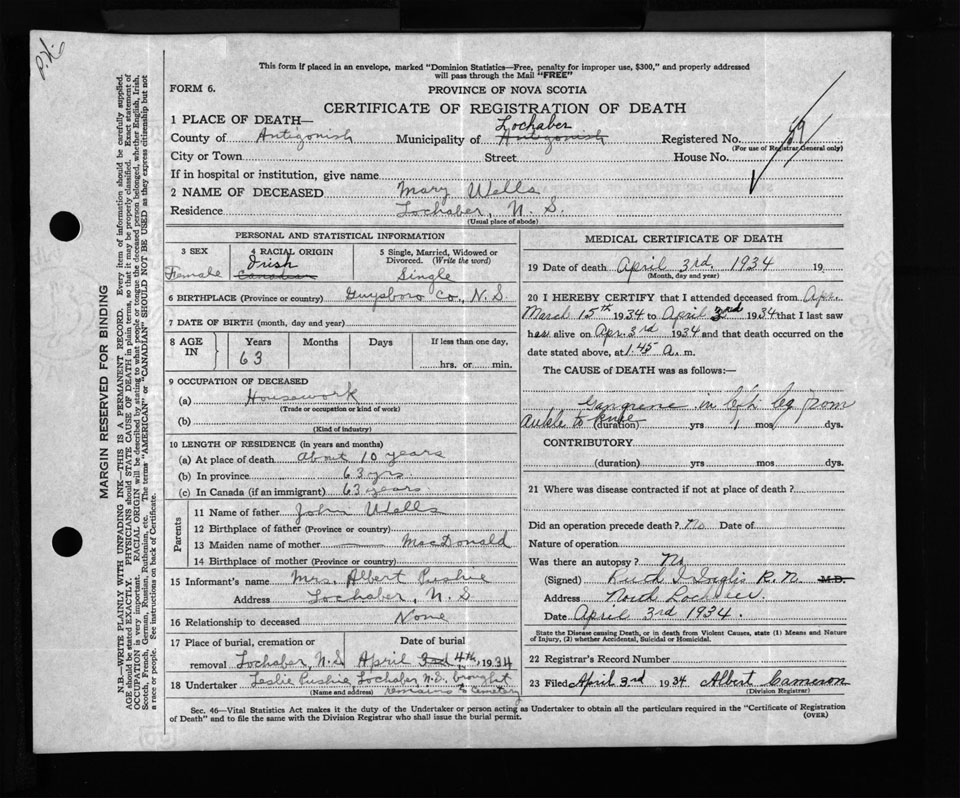 This form if placed in an envelope, marked "Dominion Statistics—Free, penalty for improper use, $300," and properly addressed
will pass through the Mail "FREE"
FORM 6.
PROVINCE OF NOVA SCOTIA
CERTIFICATE OF REGISTRATION OF DEATH
1 PLACE OF DEATH—
Lochaber
County of Antigonish Municipality of Antigonish Registered No. 59
(For use of Registrar General only)
City or Town Street House No.
If in hospital or institution, give name
2 NAME OF DECEASED Mary Wells
Residence Lochaber, N. S.
(Usual place of abode)
PERSONAL AND STATISTICAL INFORMATION
3 SEX 4 RACIAL ORIGIN 5 Single, Married, Widowed or
Divorced. (Write the word)
Irish
Female Canadian Single
6 BIRTHPLACE (Province or country) Guysboro Co., N. S
7 DATE OF BIRTH (month, day and year)
8 AGE IN Years Months Days If less than one day,
63 hrs. or min.
9 OCCUPATION OF DECEASED
(a) Housework
(Trade or occupation or kind of work)
(b)
(Kind of industry)
10 LENGTH OF RESIDENCE (in years and months)
(a) At place of death About 10 years
(b) In province 63 yrs
(c) In Canada (if an immigrant) 63 years
Parents
11 Name of father John Wells
12 Birthplace of father (Province or country)
13 Maiden name of mother — MacDonald
14 Birthplace of mother (Province or country)
15 Informant's name Mrs. Albert Pushie
Address Lochaber, N. S
16 Relationship to deceased None
17 Place of burial, cremation or Date of burial
removal Lochaber, N.S April 3rd 4th, 1934
18 Undertaker Leslie Pushie Lochaber N.S. brought
(Name and address) remains to cemetery
MEDICAL CERTIFICATE OF DEATH
19 Date of death April 3rd. 1934 19
(Month, day and year)
20 I HEREBY CERTIFY that I attended deceased from Apr.
March 15th 1934 to April 3rd 1934 that I last saw
has alive on Apr. 3rd 1934 and that death occurred on the
date stated above, at 1.45 a. m.
The CAUSE of DEATH was as follows:—
Gangrene in left leg from
Ankle to knee
(duration) yrs 1 mos dys.
CONTRIBUTORY
(duration) yrs mos dys.
21 Where was disease contracted if not at place of death?
Did an operation precede death? No Date of
Nature of operation
Was there an autopsy? No
(Signed) Ruth I Inglis R. N. M.D.
Address North Lochaber.
Date April 3rd 1934.
State the Disease causing Death, or in death from Violent Causes, state (1) Means and Nature
of Injury, (2) whether Accidental, Suicidal or Homicidal.
22 Registrar's Record Number
23 Filed April 3rd 1934 Albert Cameron
(Division Registrar)
Sec. 46—Vital Statistics Act makes it the duty of the Undertaker or person acting as Undertaker to obtain all the particulars required in the "Certificate of Registration
of Death" and to file the same with the Division Registrar who shall issue the burial permit.
(OVER)
MARGIN RESERVED FOR BINDING
N.B.—WRITE PLAINLY WITH UNFADING INK—THIS IS A PERMANENT RECORD. Every item of information should be carefully supplied.
AGE should be stated EXACTLY. PHYSICIANS should STATE CAUSE OF DEATH in plain terms, so that it may be properly classified. Exact statement of
OCCUPATION is very important. RACIAL ORIGIN will be described by stating to what people or tongue the deceased person belonged, whether English, Irish,
Scotch, French, German, Russian, Ruthenian, etc. The terms "AMERICAN" or "CANADIAN" SHOULD NOT BE USED as they express citizenship but not
a race or people. See instructions on back of Certificate.